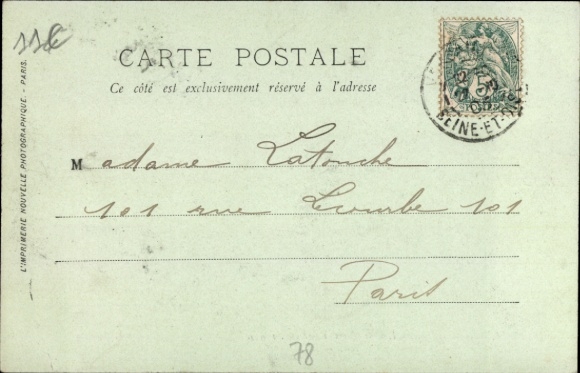 11€
CARTE POSTALE
Ce côté est exclusivement réservé à l'adresse
Madame Latouche
101 rue Lecourbe 101
Paris
78
L'IMPRIMERIE NOUVELLE PHOTOGRAPHIQUE. - PARIS.
SEINE-ET-OISE